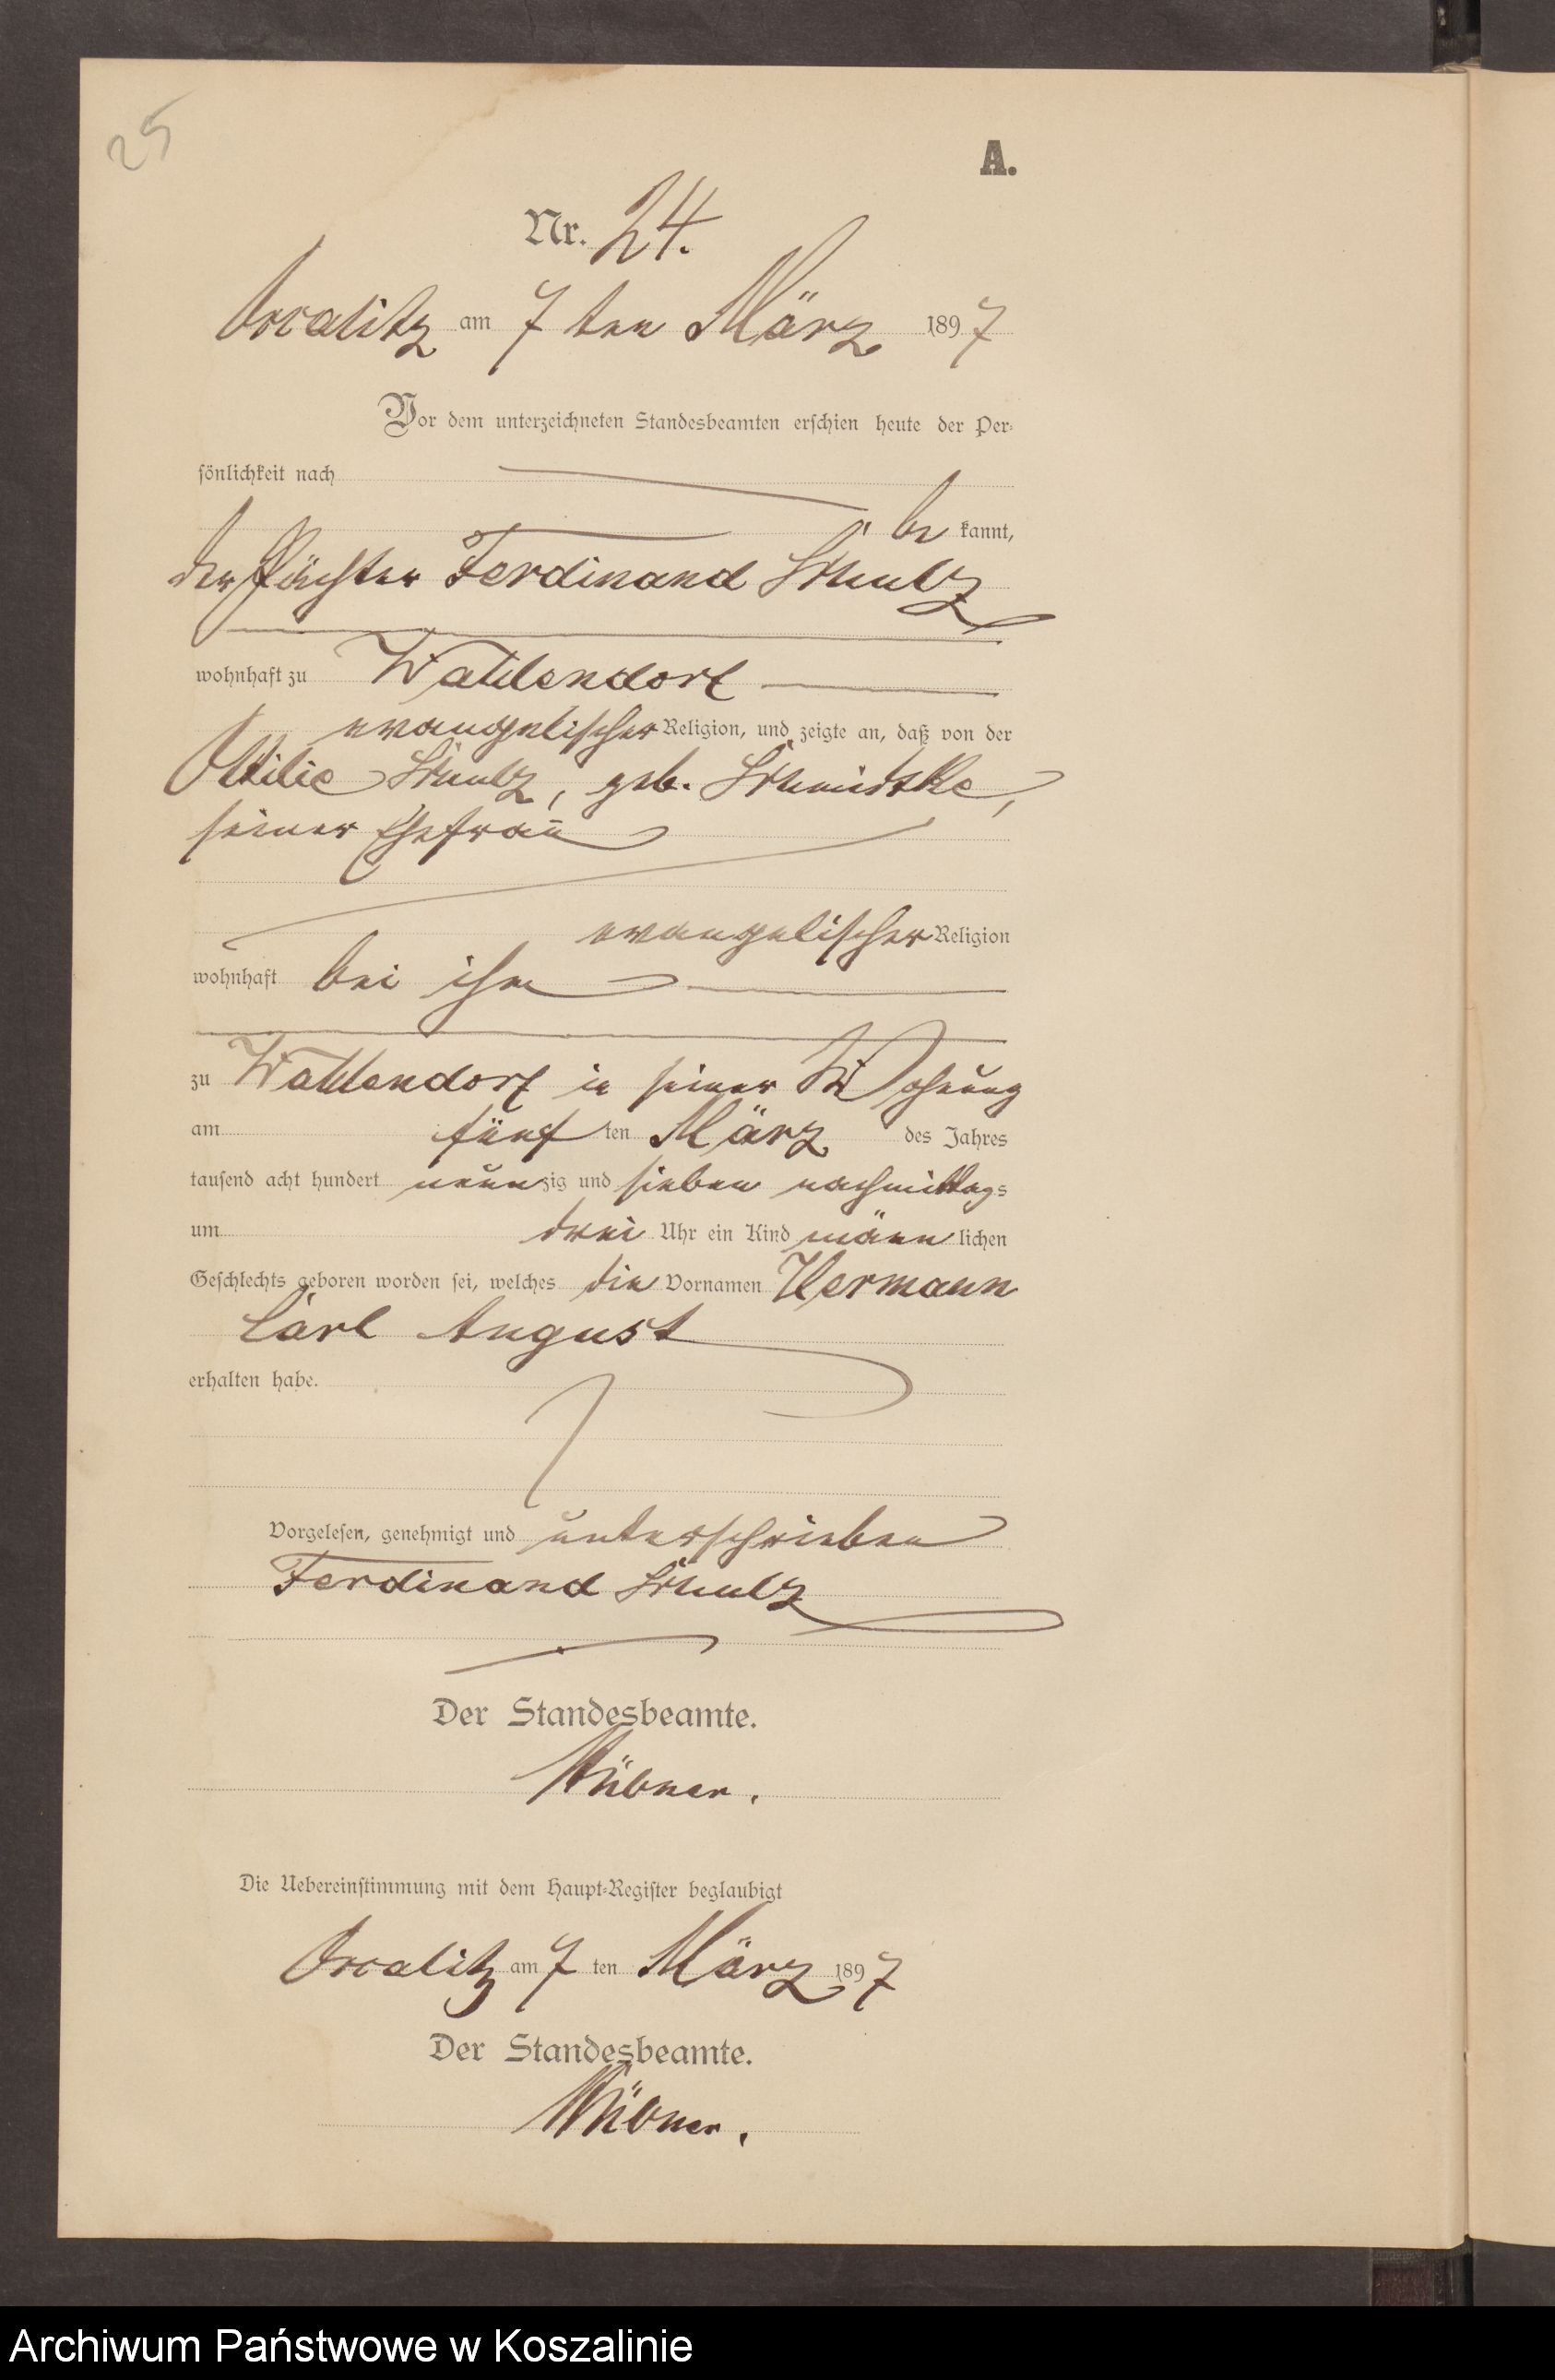 25
A.
Nr. 24.
am 7 ten März 1897
Vor dem unterzeichneten Standesbeamten erschien heute der Per-
sönlichkeit nach
be kannt,
der Pächter Ferdinand Schulz
wohnhaft zu Wahlendorf
evangelischer Religion, und zeigte an, daß von der
Ottilie Schulz, geb. Schmidtke,
seiner Ehefrau
evangelischer Religion
wohnhaft bei ihm
zu Wahlendorf in seiner Wohnung
am fünf ten März des Jahres
tausend acht hundert neunzig und sieben nachmittags
um drei Uhr ein Kind männ lichen
Geschlechts geboren worden sei, welches die Vornamen Hermann
Carl August
erhalten habe.
Vorgelesen, genehmigt und unterschrieben
Ferdinand Schulz
Der Standesbeamte.
Hübner.
Die Uebereinstimmung mit dem Haupt-Register beglaubigt
am 7 ten März 1897
Der Standesbeamte.
Hübner.
Archiwum Państwowe w Koszalinie